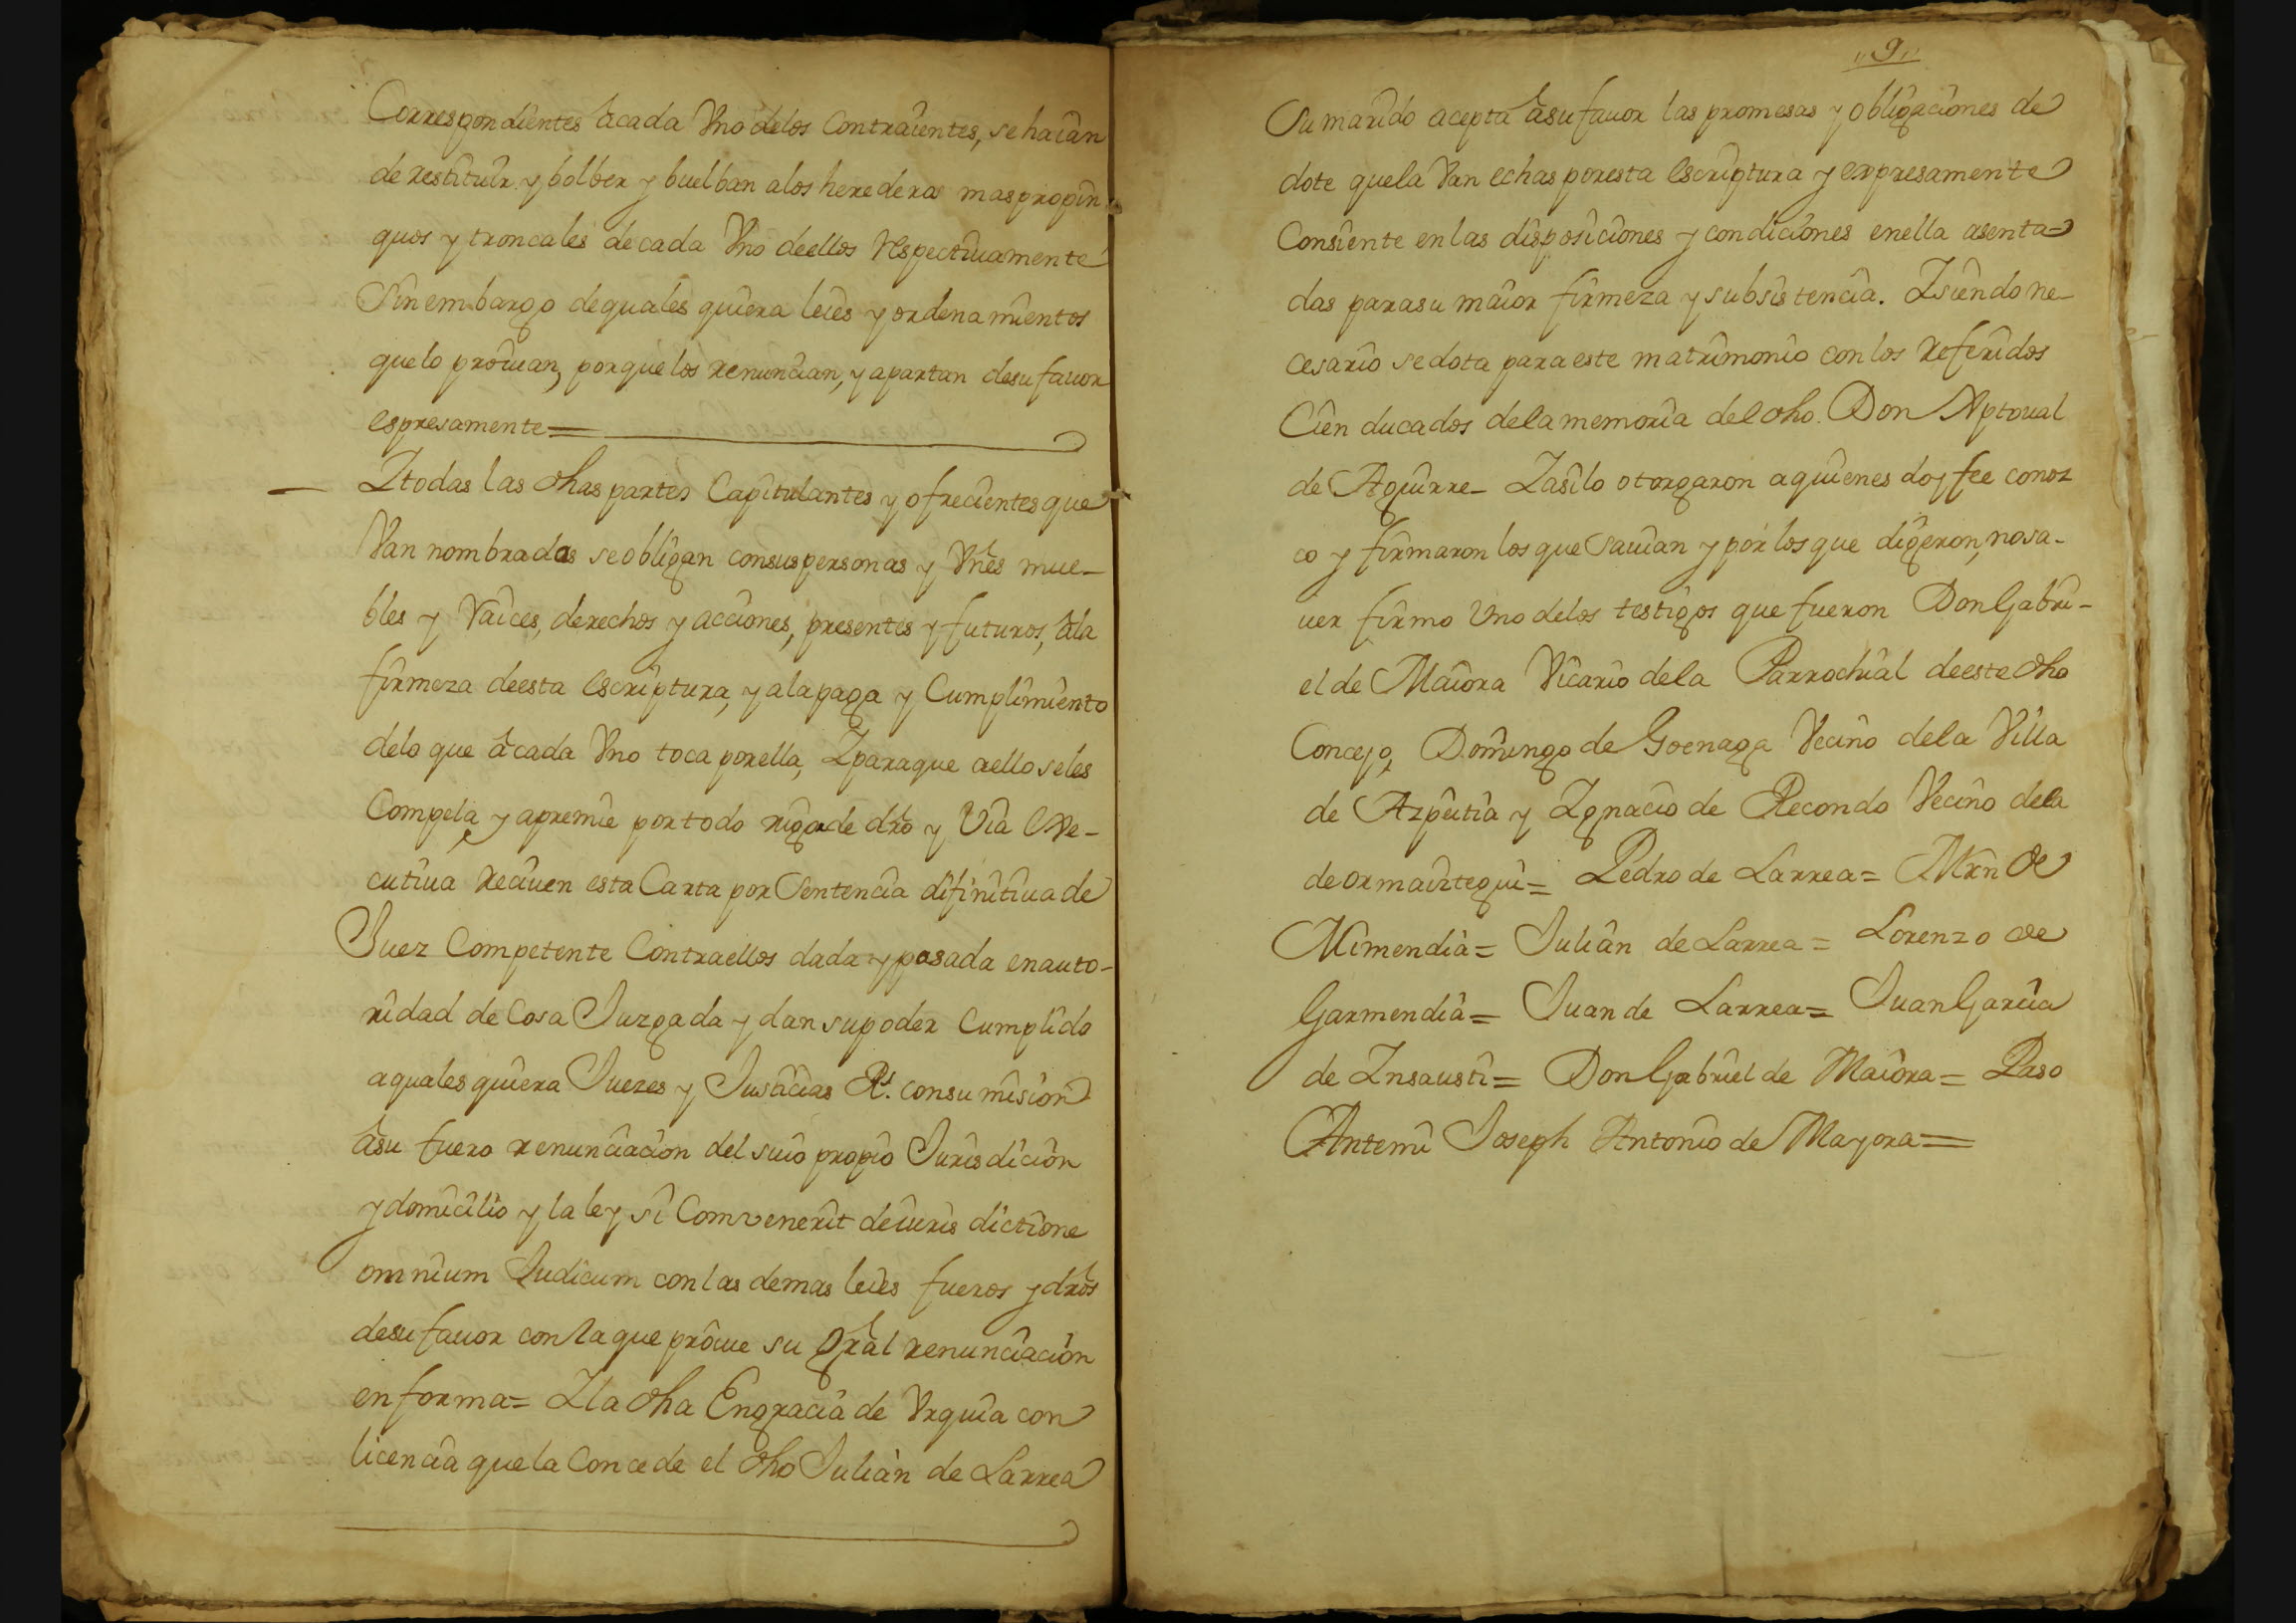 Correspondientes â cada Vno delos Contraientes, se haian
de restituir y bolber y buelban alos herederos mas propin
quos y troncales de cada Vno deellos Respectiuamente
Sin embargo de quales quiera leies y ordenamientos
quelo prouan, porque los renuncian, y apartan desu fauor
espresamente=
Y todas las dhas partes Capitulantes y ofrecientes que
Van nombradas se obligan con sus personas y Vnes mue-
bles y Raices, derechos y acciones, presentes y futuros, âla
firmeza deesta escriptura, y ala paga y Cumplimiento
delo que â cada Vno toca por ella, Y para que aello seles
Compela y apremie por todo rigor de dro y Via Exe-
cutiua Reciuen esta Carta por Sentencia difinitiua de
Juez Competente Contraellos dada y pasada en auto-
ridad de Cosa Juzgada y dan su poder Cumplido
a quales quiera Juezes y Justicias Rs. con su mision
âsu fuero renunciacion del suio propio Jurisdicion
y domicilio y la ley si Comvenerit de iuris dictione
omnium Judicum con las demas leies fueros y dros
desu fauor con la que proiue su Gral renunciacion
en forma= Y la dha Engracia de Vrquia con
licencia que la Concede el dho Julian de Larrea
"9"
Su marido acepta âsu fauor las promesas y obligaciones de
dote que la Van echas por esta escriptura y expresamente
Consiente en las disposiciones y condiciones en ella asenta=
das para su maior firmeza y subsistencia. Y siendo ne-
cesario se dota para este matrimonio con los Referidos
Cien ducados dela memoria del dho. Don Xptoual
de Aguirre- Y asilo otorgaron a quienes doy fee conoz
co y firmaron los que sauian y por los que digeron, no sa-
uer firmo Vno delos testigos que fueron Don Gabri-
el de Maiora Vicario dela Parrochial deeste dho
Concejo, Domingo de Goenaga Vecino dela Villa
de Azpeitia y Ygnacio de Recondo Vecino dela
de ormaiztegui= Pedro de Larrea= Mrn de
Mimendia= Julian de Larrea= Lorenzo de
Garmendia= Juan de Larrea= Juan Garcia
de Insausti= Don Gabriel de Maiora= Paso
Antemi Joseph Antonio de Mayora=